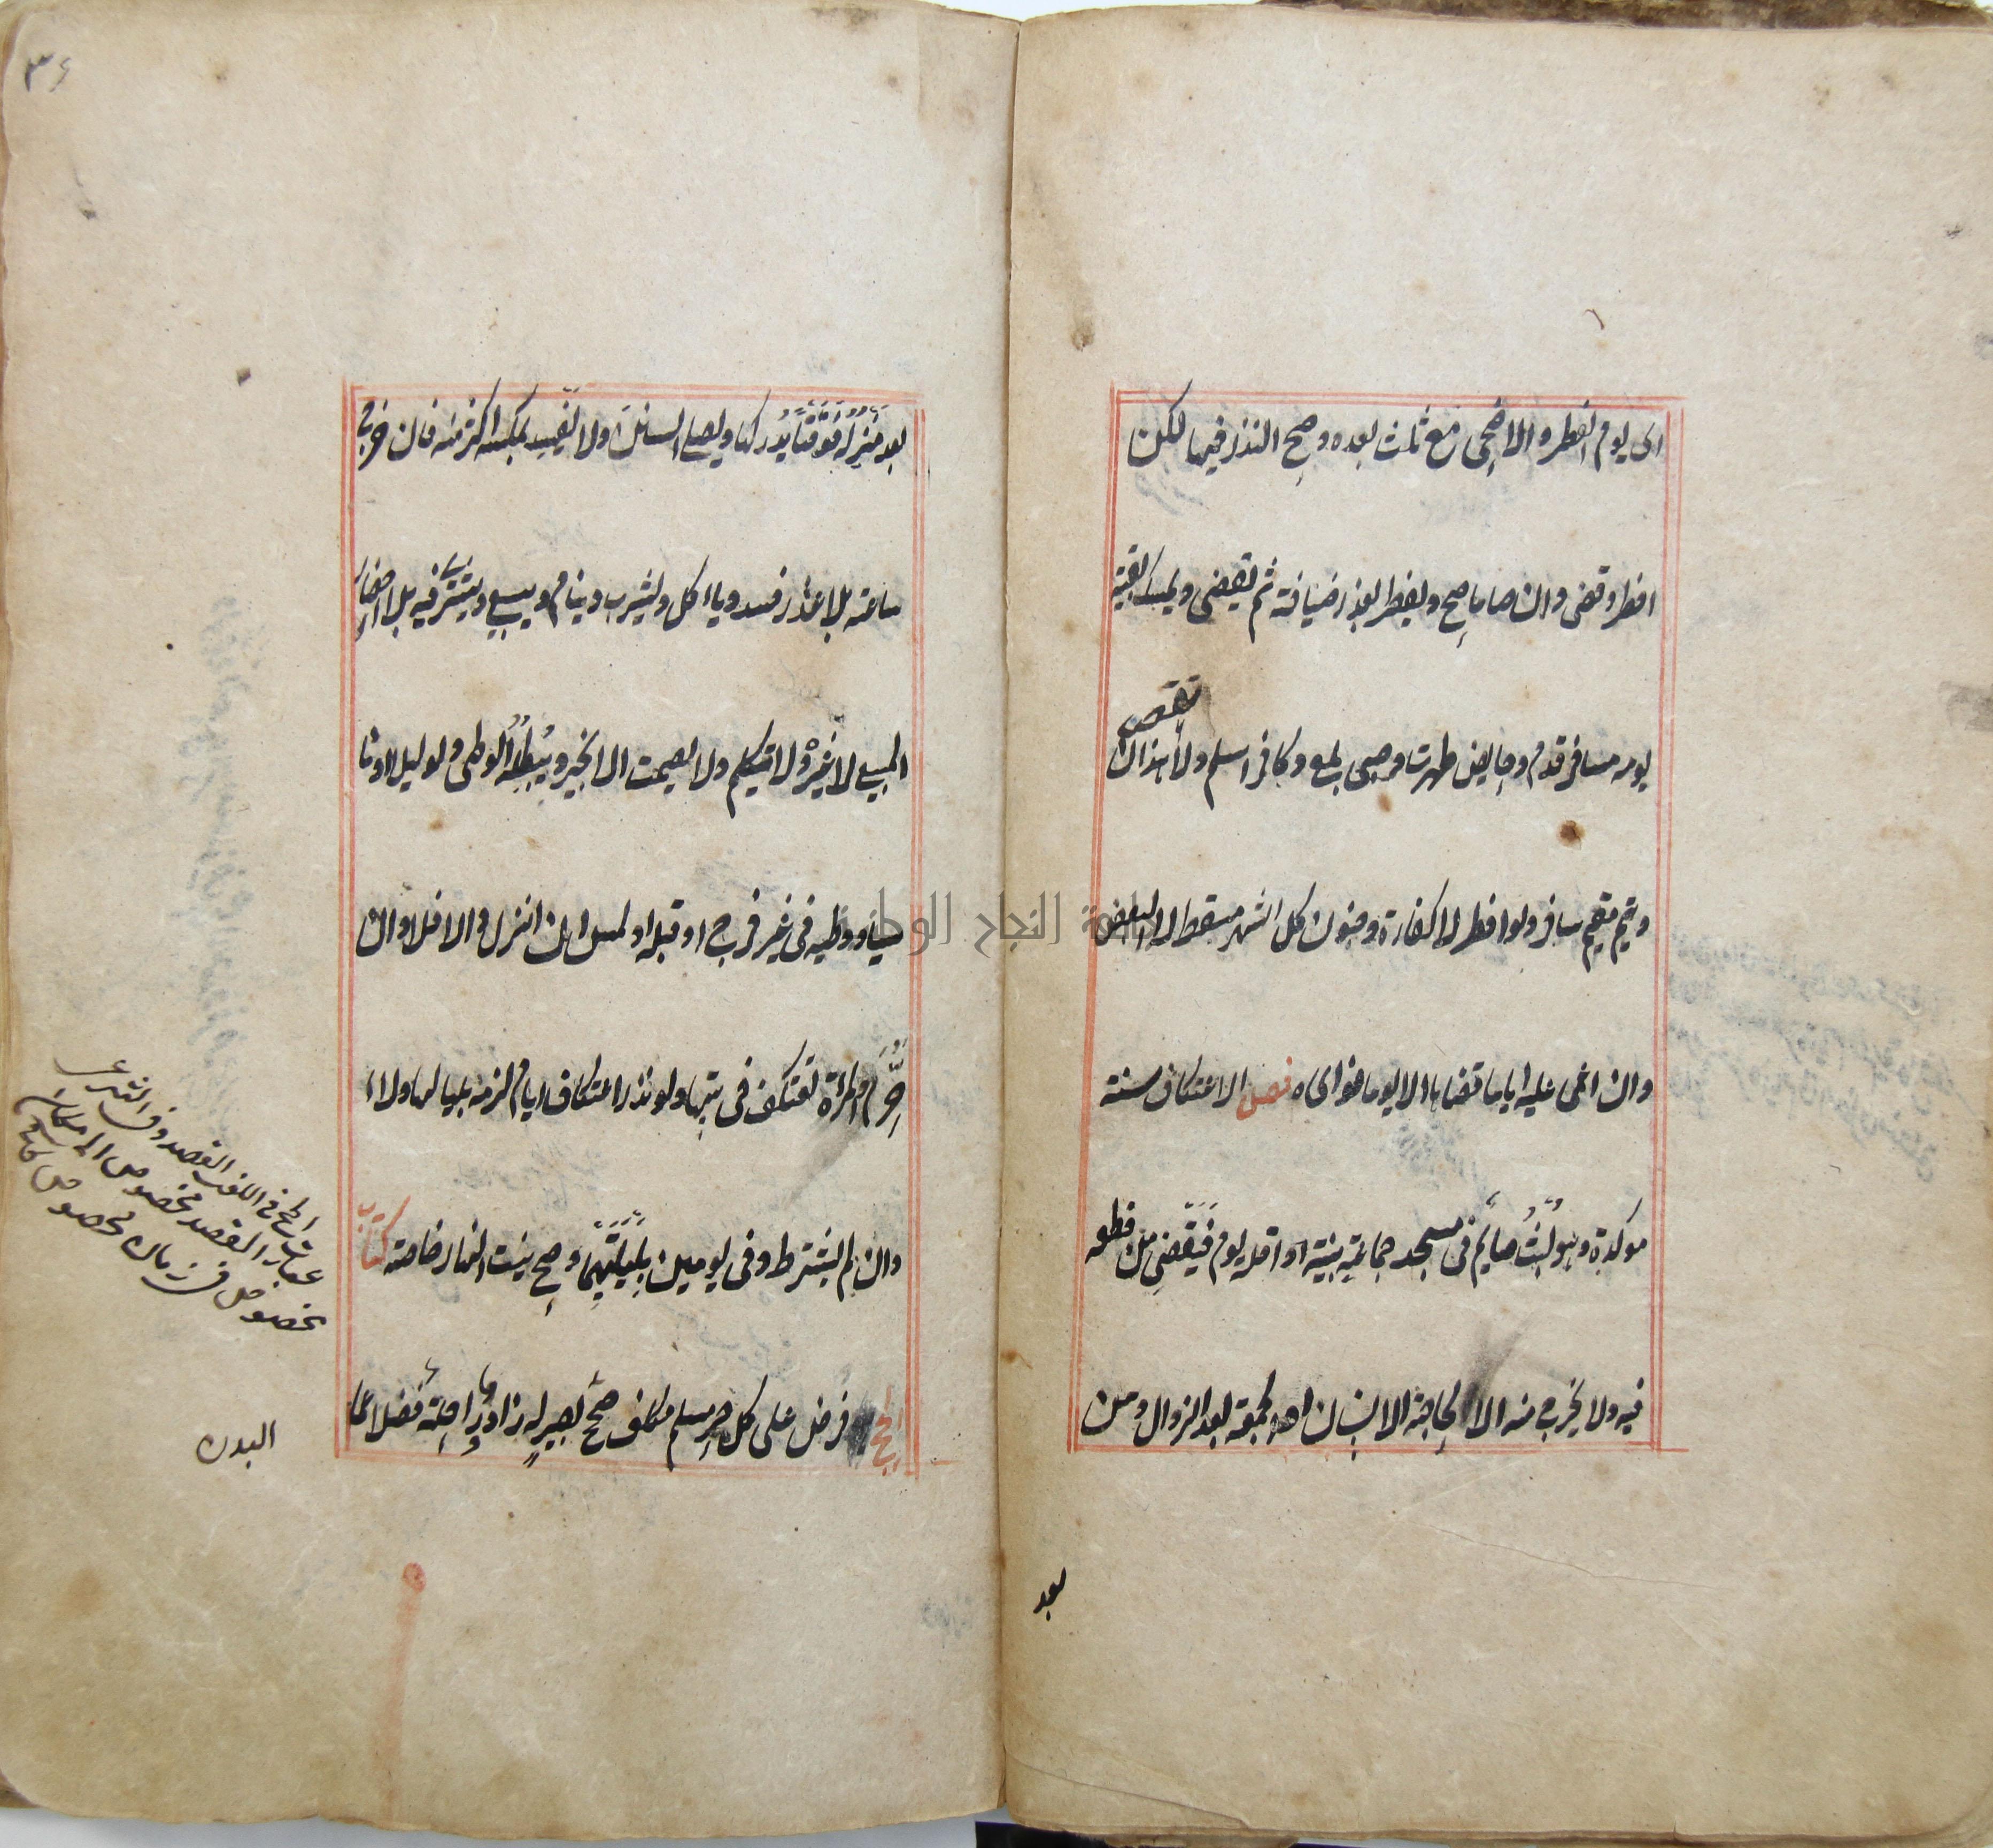 الى يوم الفطر والاضحى مع ثلث بعده وصح النذر فيها لكن
افطر وقضى وان صامها صح ويفطر بعذر ضيافة ثم يقضى ويمسك بقية
يومه مسافر قدم وحايض طهرت وصبى بلغ وكافر اسلم ولا يقضى هذان
ويتم مقيم سافر ولو افطر لا كفارة وجنون كل الشهر مسقط لا البعض
وان اغمى عليه اياما قضاها الا يوما نواه فصل الاعتكاف سنة
موكدة وهو لبث صايم فى مسجد جماعة بنيته واقله يوم فيقضى من قطعه
فيه ولا يخرج منه الا لحاجة الانسان او لجمعة بعد الزوال ومن
بعد
٣٤
بعد منزله فوقتا يدركها ويصلى السنن ولا يفسد بمكثه اكثر منه فان خرج
ساعة بلا عذر فسد وياءكل ويشرب وينام ويبيع ويشترى فيه بلا احضار
المبيع لا غيره ولا يتكلم ولا يصمت الا بخير ويبطله الوطى ولو ليلا او نا
سيا ووطيه فى غير فرج او قبلة او لمس ان انزل والا فلا وان
حرم والمراة تعتكف فى بيتها ولو نذر اعتكاف ايام لزمه بلياليها ولاء
وان لم يشترط وفى يومين بليلتهما وصح نيت النهار خاصة كتاب
الحج فرض على كل حر مسلم مكلف صحيح بصير له زاد وراحلة فضلا عما
الحج فى اللغت القصد وفى الشرع
عبارت القصد مخصوص الى مكان
مخصوص فى زمان مخصوص
البدن
النجاح الوطنية